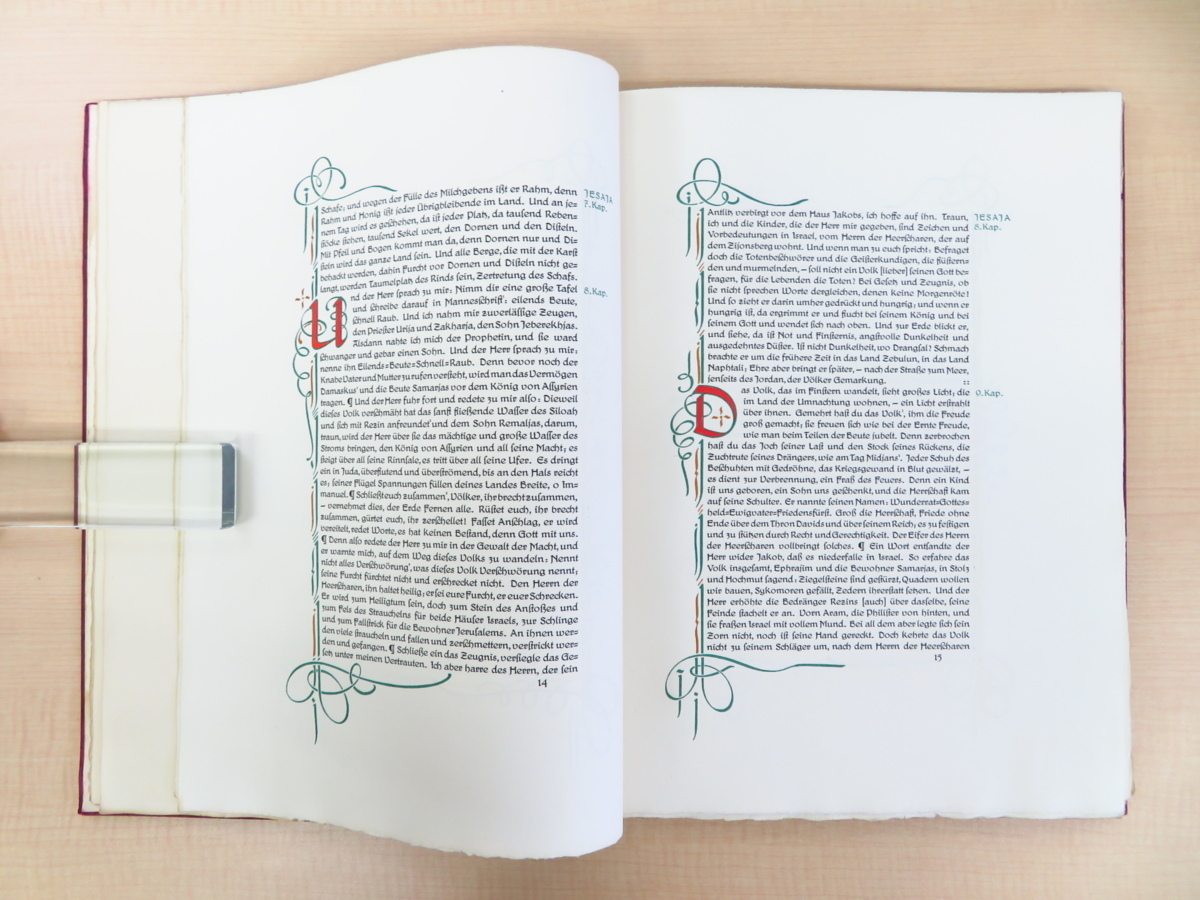 Schafe; und wegen der Fülle des Milchgebens ißt er Rahm, denn
Rahm und Honig ißt jeder Übrigbleibende im Land. Und an je⸗
nem Tag wird es geschehen, da ist jeder Platz, da tausend Reben⸗
stöcke stehen, tausend Sekel wert, den Dornen und den Disteln.
Mit Pfeil und Bogen kommt man da, denn Dornen nur und Di⸗
steln wird das ganze Land sein. Und alle Berge, die mit der Karst
behackt werden, dahin Furcht vor Dornen und Disteln nicht ge⸗
langt, werden Taumelplatz des Rinds sein, Zertretung des Schafs.
JESAJA
7. Kap.
Und der Herr sprach zu mir: Nimm dir eine große Tafel
und schreibe darauf in Mannesschrift: eilends Beute,
schnell Raub. Und ich nahm mir zuverlässige Zeugen,
den Priester Urija und Zakharja, den Sohn Jeberekhjas.
Alsdann nahte ich mich der Prophetin, und sie ward
schwanger und gebar einen Sohn. Und der Herr sprach zu mir:
nenne ihn Eilends⸗Beute⸗Schnell⸗Raub. Denn bevor noch der
Knabe Vater und Mutter zu rufen versteht, wird man das Vermögen
Damaskus' und die Beute Samarjas vor dem König von Assyrien
tragen. ¶ Und der Herr fuhr fort und redete zu mir also: Dieweil
dieses Volk verschmäht hat das sanft fließende Wasser des Siloah
und sich mit Rezin anfreundet' und dem Sohn Remaljas, darum,
traun, wird der Herr über sie das mächtige und große Wasser des
Stroms bringen, den König von Assyrien und all seine Macht; es
steigt über all seine Rinnsale, es tritt über all seine Ufer. Es dringt
ein in Juda, überflutend und überströmend, bis an den Hals reicht
es; seiner Flügel Spannungen füllen deines Landes Breite, o Im⸗
manuel. ¶ Schließt euch zusammen', Völker, ihr brecht zusammen,
– vernehmet dies, der Erde Fernen alle. Rüstet euch, ihr brecht
zusammen, gürtet euch, ihr zerschellet! Fasset Anschlag, er wird
vereitelt, redet Worte, es hat keinen Bestand, denn Gott mit uns.
¶ Denn also redete der Herr zu mir in der Gewalt der Macht, und
er warnte mich, auf dem Weg dieses Volks zu wandeln: Nennt
nicht alles Verschwörung', was dieses Volk Verschwörung nennt,
seine Furcht fürchtet nicht und erschrecket nicht. Den Herrn der
Heerscharen, ihn haltet heilig; er sei eure Furcht, er euer Schrecken.
Er wird zum Heiligtum sein, doch zum Stein des Anstoßes und
zum Fels des Strauchelns für beide Häuser Israels, zur Schlinge
und zum Fallstrick für die Bewohner Jerusalems. An ihnen wer⸗
den viele straucheln und fallen und zerschmettern, verstrickt wer⸗
den und gefangen. ¶ Schließe ein das Zeugnis, versiegle das Ge⸗
setz unter meinen Vertrauten. Ich aber harre des Herrn, der sein
8. Kap.
14
Antlitz verbirgt vor dem Haus Jakobs, ich hoffe auf ihn. Traun,
ich und die Kinder, die der Herr mir gegeben, sind Zeichen und
Vorbedeutungen in Israel, vom Herrn der Heerscharen, der auf
dem Zijonsberg wohnt. Und wenn man zu euch spricht: Befraget
doch die Totenbeschwörer und die Geisterkundigen, die flüstern⸗
den und murmelnden, – soll nicht ein Volk [lieber] seinen Gott be⸗
fragen, für die Lebenden die Toten? Bei Gesetz und Zeugnis, ob
sie nicht sprechen Worte dergleichen, denen keine Morgenröte!
Und so zieht er darin umher gedrückt und hungrig; und wenn er
hungrig ist, da ergrimmt er und flucht bei seinem König und bei
seinem Gott und wendet sich nach oben. Und zur Erde blickt er,
und siehe, da ist Not und Finsternis, angstvolle Dunkelheit und
ausgedehntes Düster. Ist nicht Dunkelheit, wo Drangsal? Schmach
brachte er um die frühere Zeit in das Land Zebulun, in das Land
Naphtali; Ehre aber bringt er später, – nach der Straße zum Meer,
jenseits des Jordan, der Völker Gemarkung. ::
JESAJA
8. Kap.
Das Volk, das im Finstern wandelt, sieht großes Licht; die
im Land der Umnachtung wohnen, – ein Licht erstrahlt
über ihnen. Gemehrt hast du das Volk', ihm die Freude
groß gemacht; sie freuen sich wie bei der Ernte Freude,
wie man beim Teilen der Beute jubelt. Denn zerbrochen
hast du das Joch seiner Last und den Stock seines Rückens, die
Zuchtrute seines Drängers, wie am Tag Midjans'. Jeder Schuh des
Beschuhten mit Gedröhne, das Kriegsgewand in Blut gewälzt, –
es dient zur Verbrennung, ein Fraß des Feuers. Denn ein Kind
ist uns geboren, ein Sohn uns geschenkt, und die Herrschaft kam
auf seine Schulter. Er nannte seinen Namen: Wunderrat⸗Gottes⸗
held⸗Ewigvater⸗Friedensfürst. Groß die Herrschaft, Friede ohne
Ende über dem Thron Davids und über seinem Reich; es zu festigen
und zu stützen durch Recht und Gerechtigkeit. Der Eifer des Herrn
der Heerscharen vollbringt solches. ¶ Ein Wort entsandte der
Herr wider Jakob, daß es niederfalle in Israel. So erfahre das
Volk insgesamt, Ephrajim und die Bewohner Samarjas, in Stolz
und Hochmut sagend: Ziegelsteine sind gestürzt, Quadern wollen
wir bauen, Sykomoren gefällt, Zedern ihrerstatt setzen. Und der
Herr erhöhte die Bedränger Rezins [auch] über dasselbe, seine
Feinde stachelt er an. Vorn Aram, die Philister von hinten, und
sie fraßen Israel mit vollem Mund. Bei all dem aber legte sich sein
Zorn nicht, noch ist seine Hand gereckt. Doch kehrte das Volk
nicht zu seinem Schläger um, nach dem Herrn der Heerscharen
9. Kap.
15